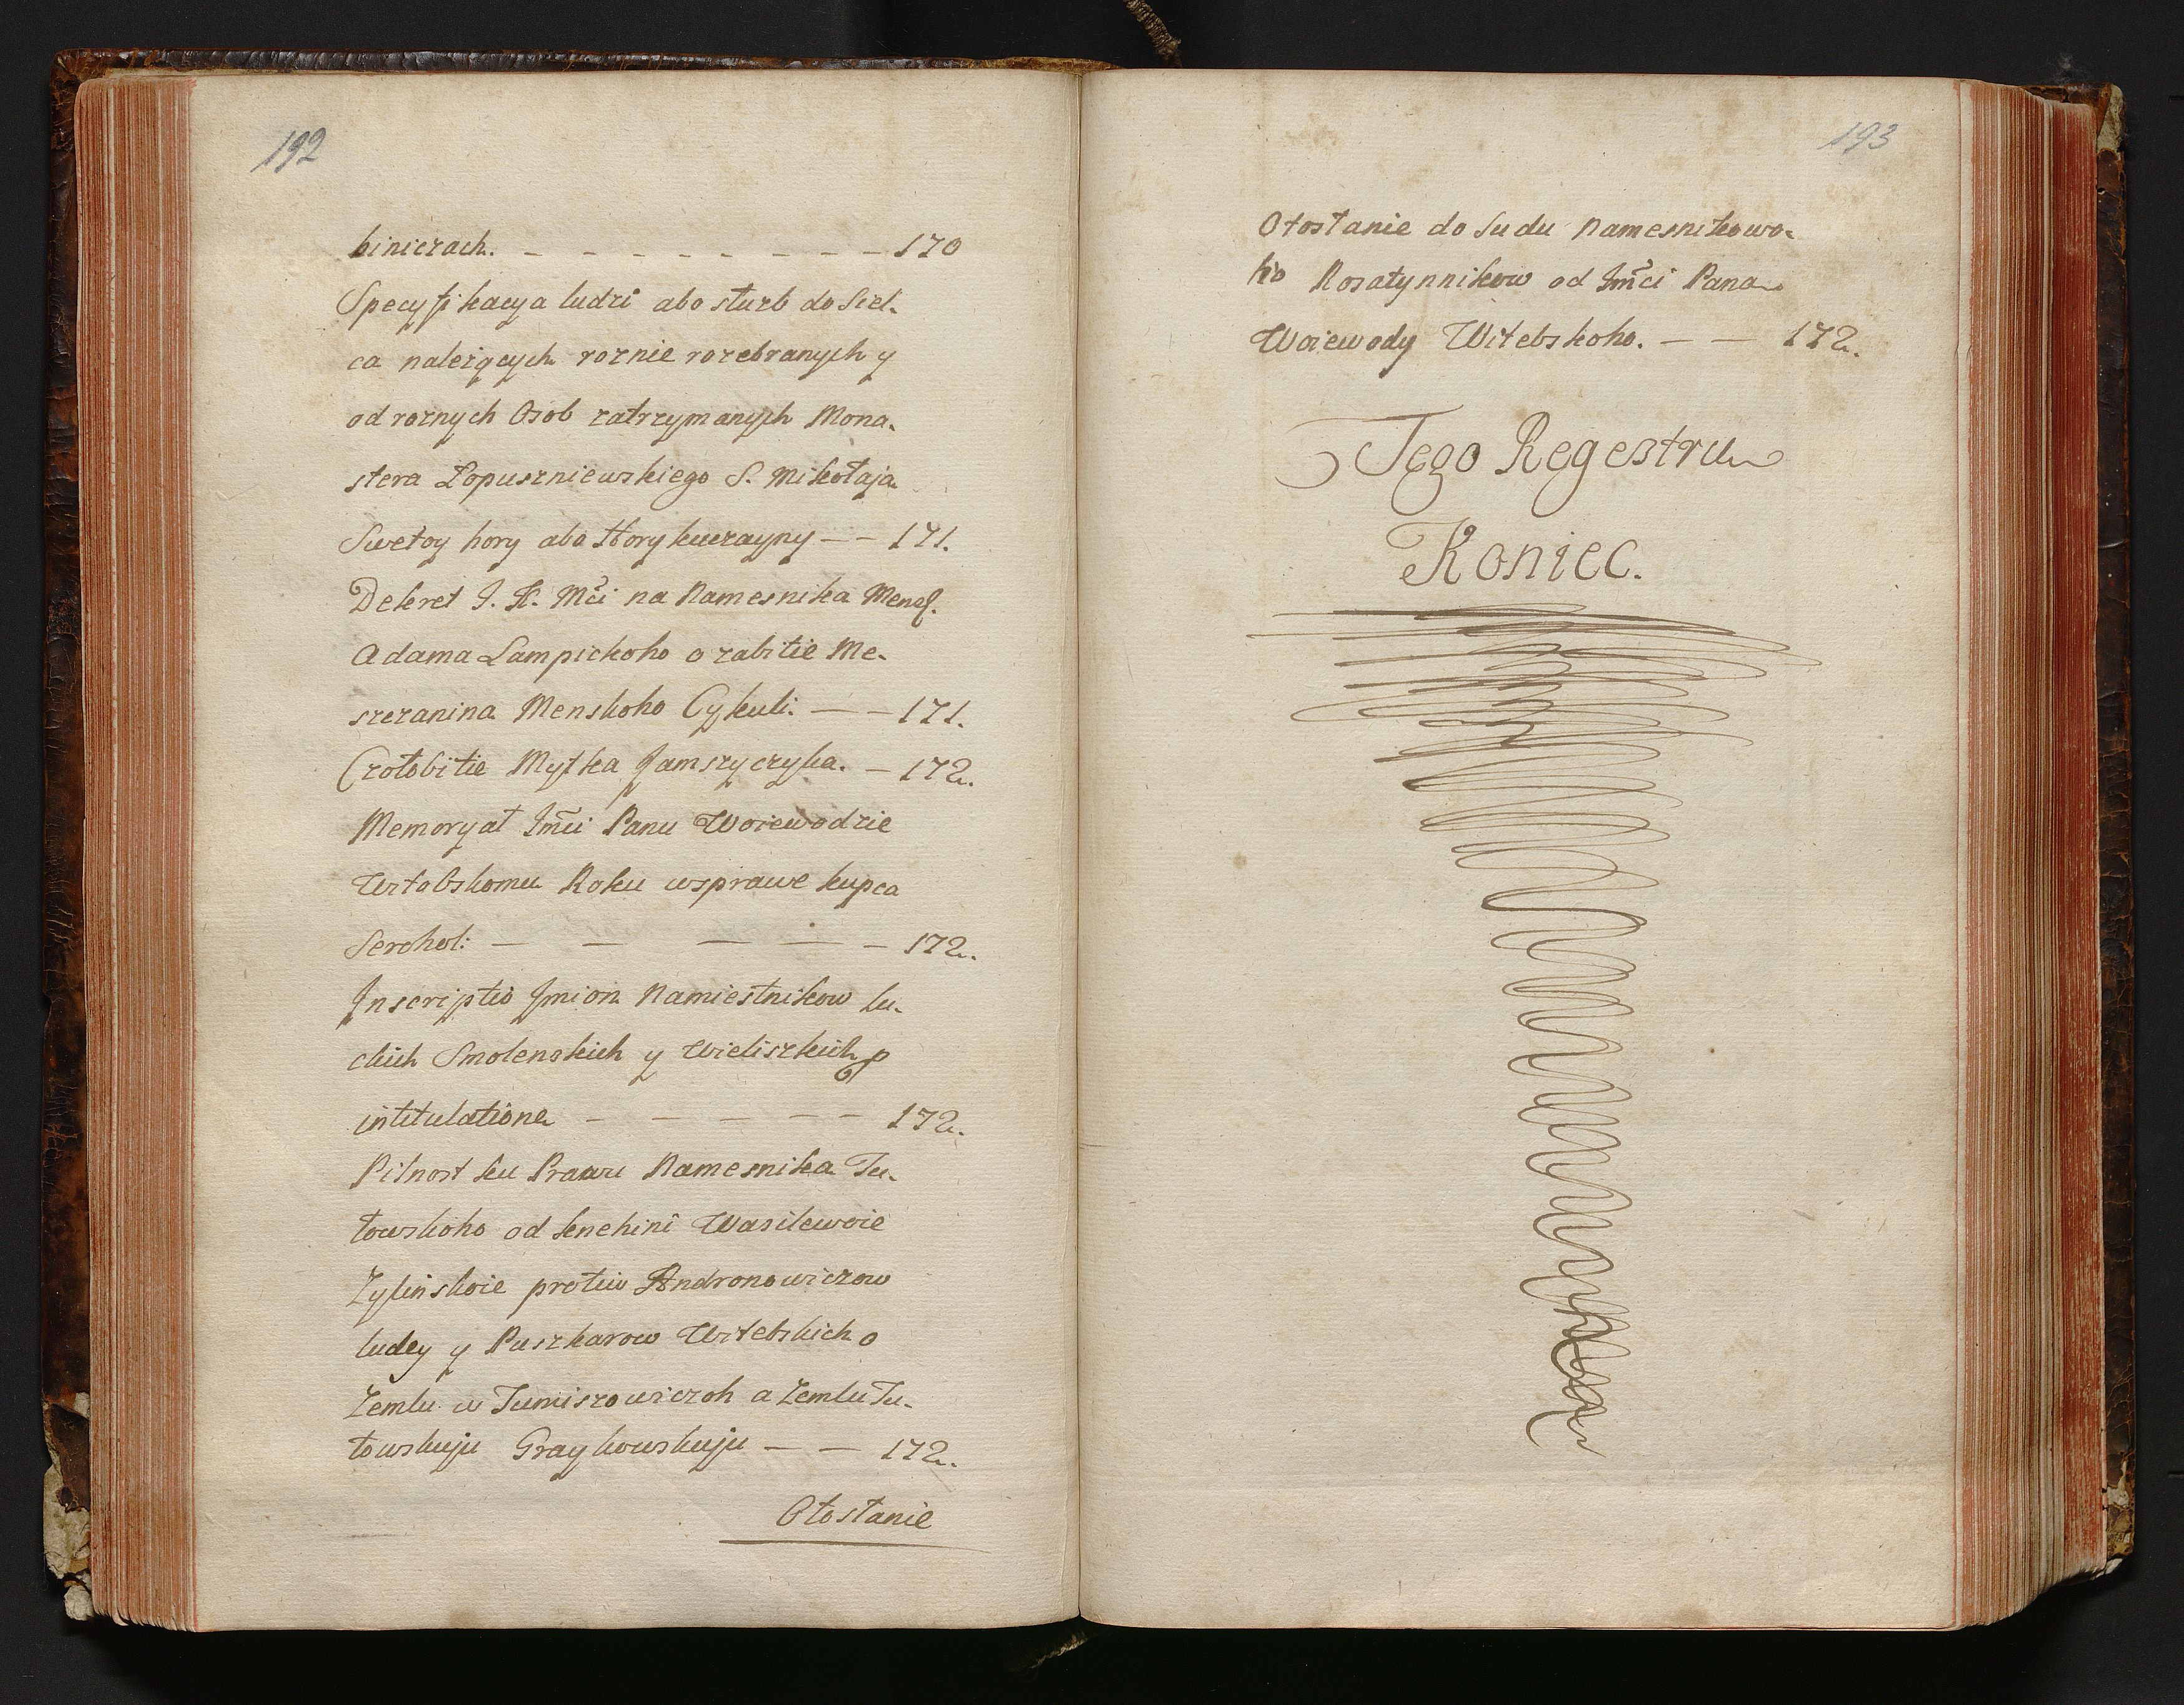 192
biniczach. - - - - - - - - - 170
Specyfikacya ludzi abo służb do Siel-
ca należących roznie rozebranych y
od roznych Osob zatrzymanych Mona-
stera Łopuszniewskiego S. Mikołaja
Swetoy hory abo Horykuczayny - - 171.
Dekret J. K. Mći na Namesnika Mensk.
Adama Lampickoho o zabitie Me-
szczanina Menskoho Cykuli. - - 171.
Czołobitie Mytka Jamszyczyka. - 172.
Memoryał Jmći Panu Woiewodzie
Witebskomu Roku wsprawe kupca
Serohol: - - - - - 172.
Inscriptio Imion Namiestnikow Lu-
ckich Smolenskich y Wieliszkich p
intitulatione - - - - - 172.
Pilnost ku Prawu Namesnika Tu-
łowskoho od knehini Wasilewoie
Żylinskoie protiw Andronowiczow
ludey y Puszkarow Witebskich o
Zemlu w Tumiszowiczoh a Zemlu Tu-
łowskuju Graykowskuju - - 172.
Otosłanie
193
Otosłanie do Sudu Namesnikowo-
ho Rosatynnikow od Jmći Pana
Woiewody Witebskoho. - - 172.
Tego Regestru
Koniec.